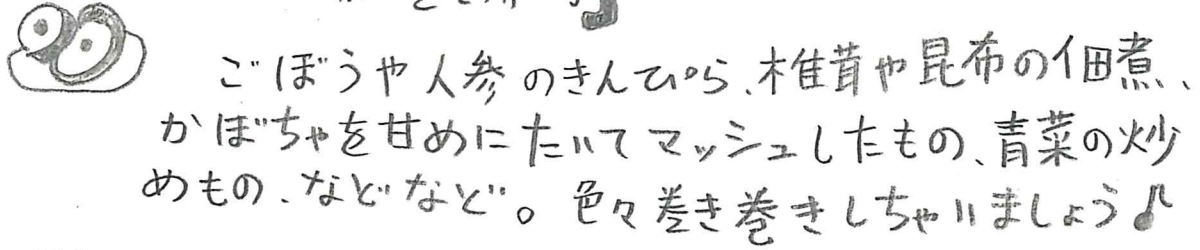 ごぼうや人参のきんぴら、椎茸や昆布の佃煮、
かぼちゃを甘めにたいてマッシュしたもの、青菜の炒
めもの、などなど。色々巻き巻きしちゃいましょう♪